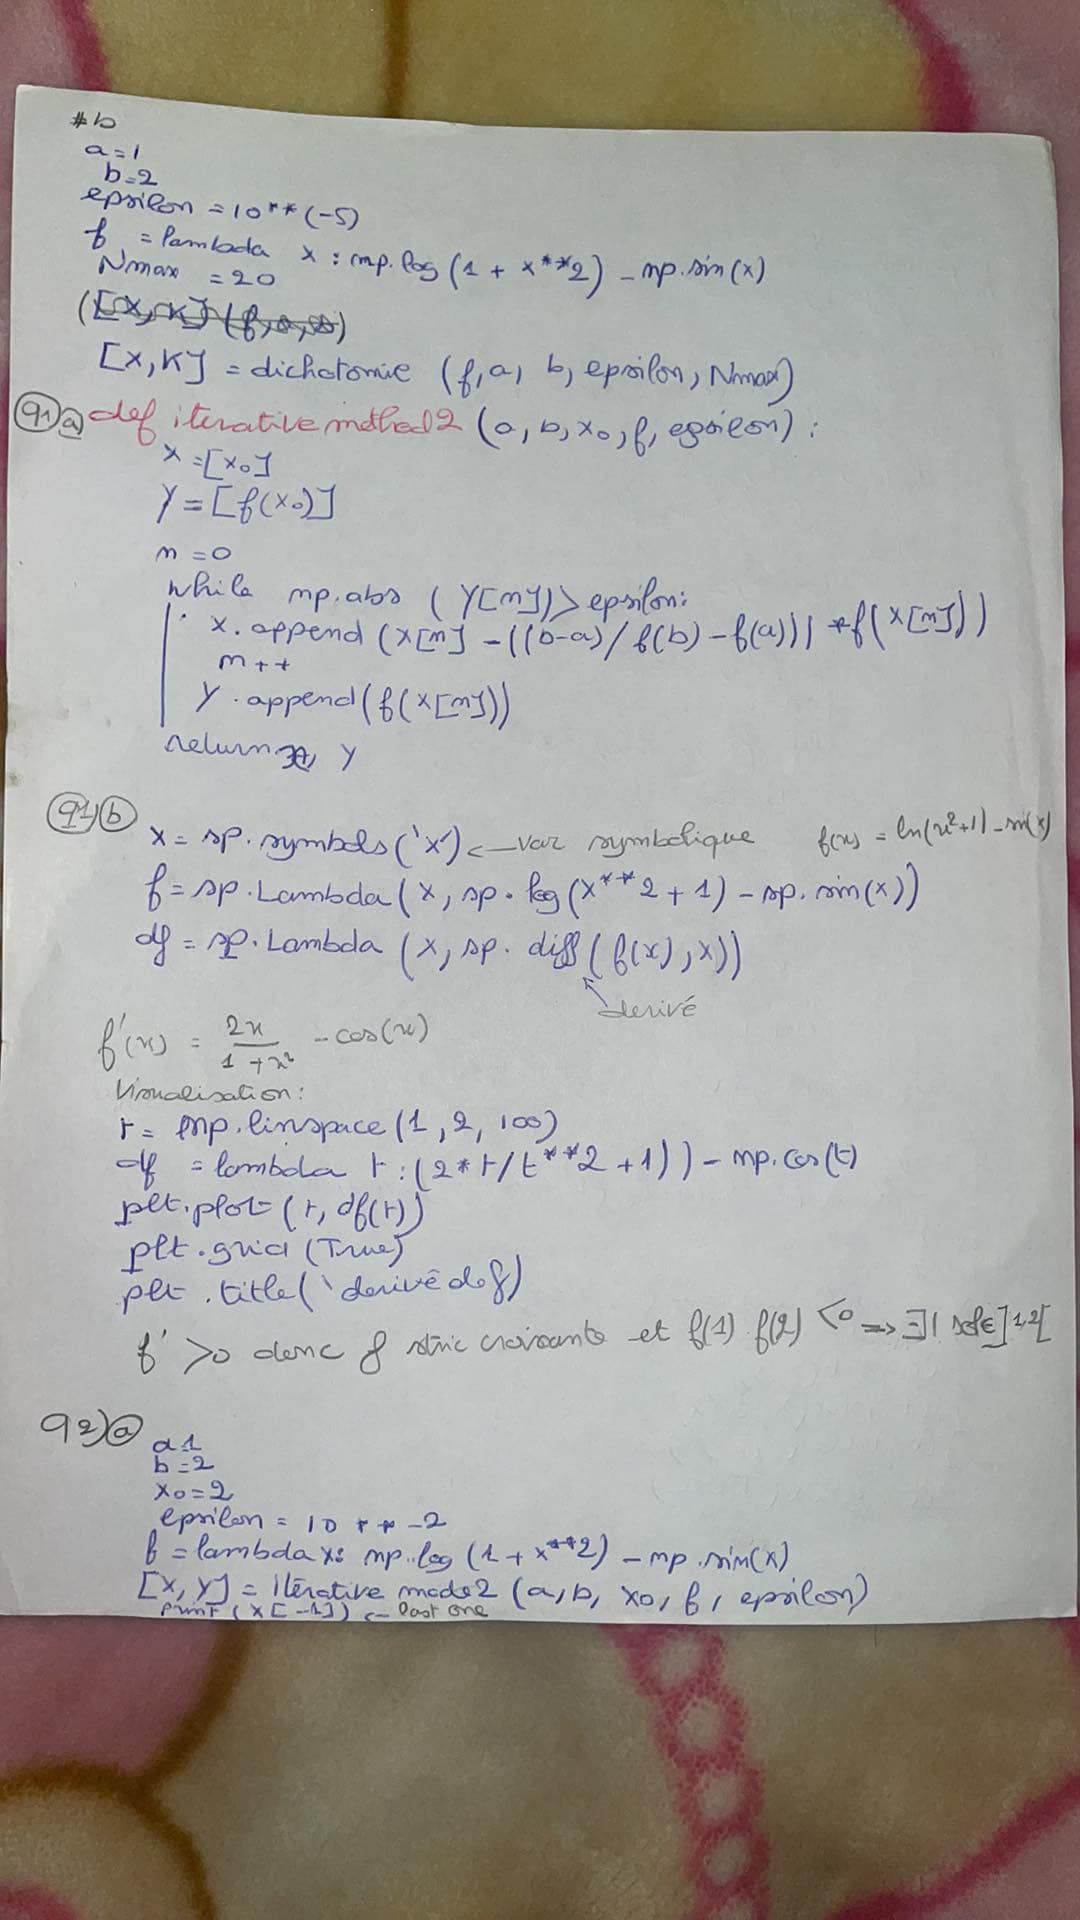 #b
a=1
b=2
epsilon = 10**(-5)
f = lambda x : np.log(1 + x**2) - np.sin(x)
Nmax = 20
[X,K] = dichotomie (f, a, b, epsilon, Nmax)
Q1)a) def iterative method 2 (a, b, x0, f, epsilon) :
X = [x0]
Y = [f(x0)]
n = 0
while np.abs (Y[n]) > epsilon:
X.append (X[n] - ((b-a)/ f(b) - f(a))) * f(X[n]))
n++
Y.append(f(X[n]))
return X, Y
Q1)b x = sp.symbols('x') <— var symbolique f(x) = ln(x²+1) - sin(x)
f = sp.Lambda(x, sp.log(x**2+1) - sp.sin(x))
df = sp.Lambda (x, sp.diff(f(x),x))
derivé
f'(x) = 2x / 1+x² - cos(x)
Visualisation:
t = np.linspace(1, 2, 100)
df = lambda t : (2*t/t**2+1)) - np.cos(t)
plt.plot(t, df(t))
plt.grid (True)
plt.title('derivé de f)
f' >0 donc f stric croissante et f(1) f(2) <0 => ∃! sol ∈]1,2[
Q2)a
a=1
b=2
x0=2
epsilon = 10**-2
f = lambda x: np.log (1+x**2) - np.sin(x)
[X,Y] = iterative mode 2 (a, b, x0, f, epsilon)
print (X[-1]) <- last one